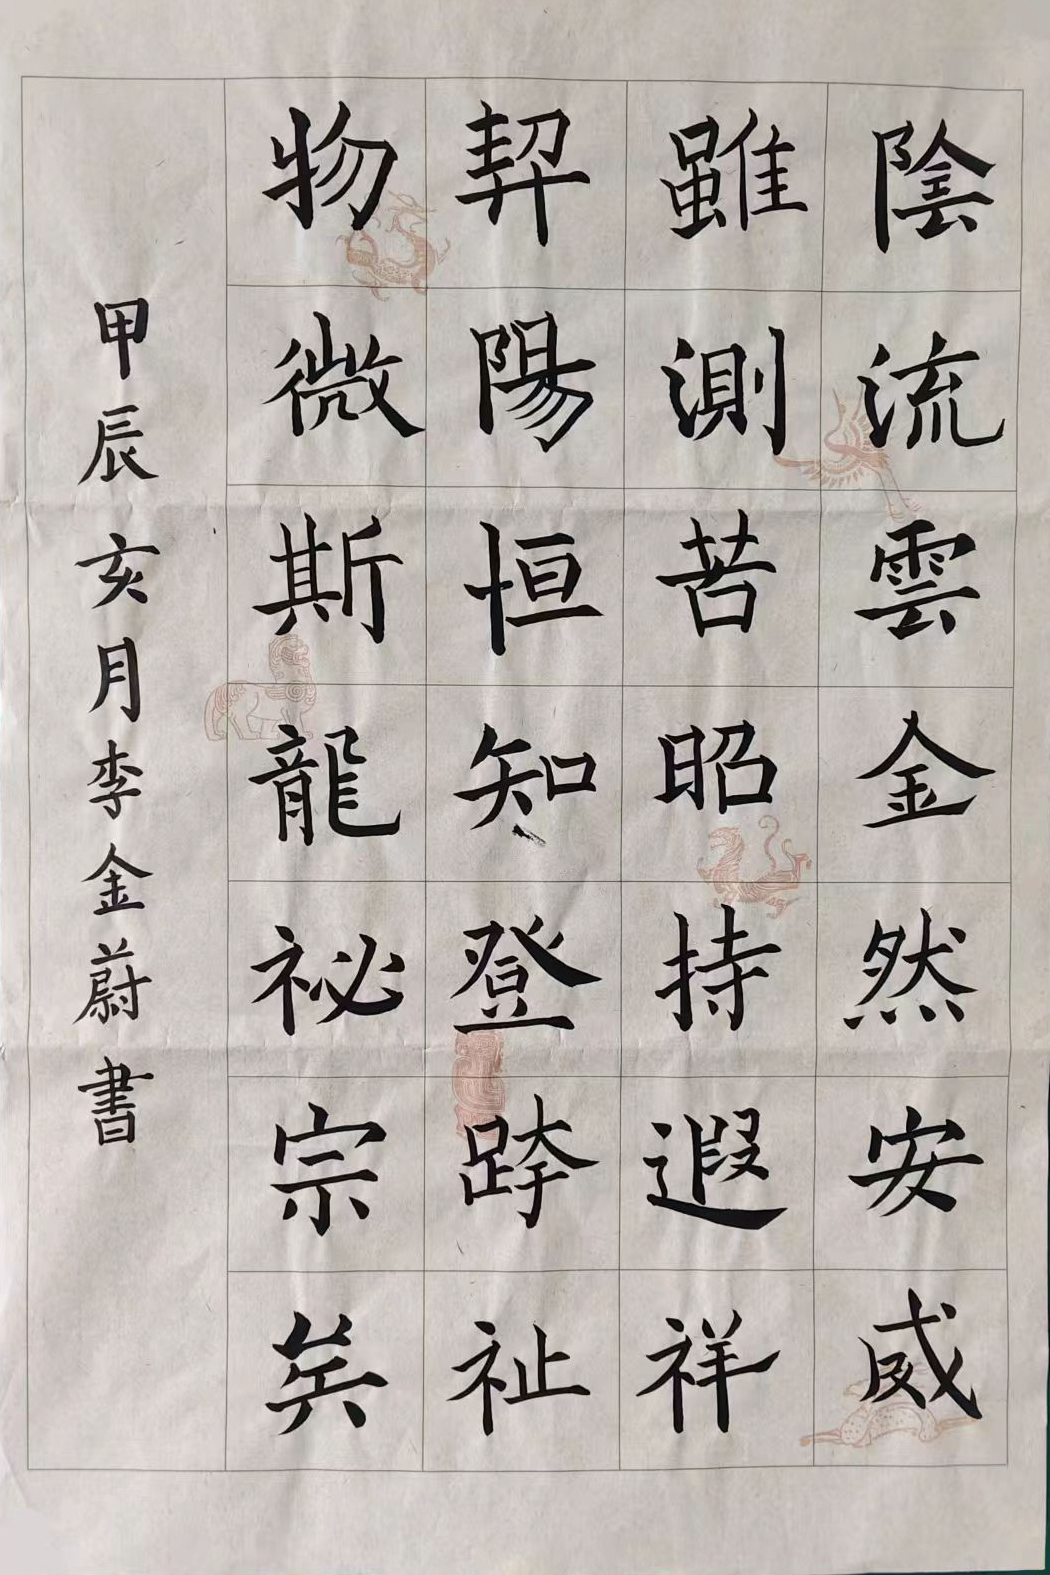 陰流雲金然安威
雖測苦昭持遐祥
契陽恒知登跨祉
物微斯龍祕宗矣
甲辰亥月李金蔚書